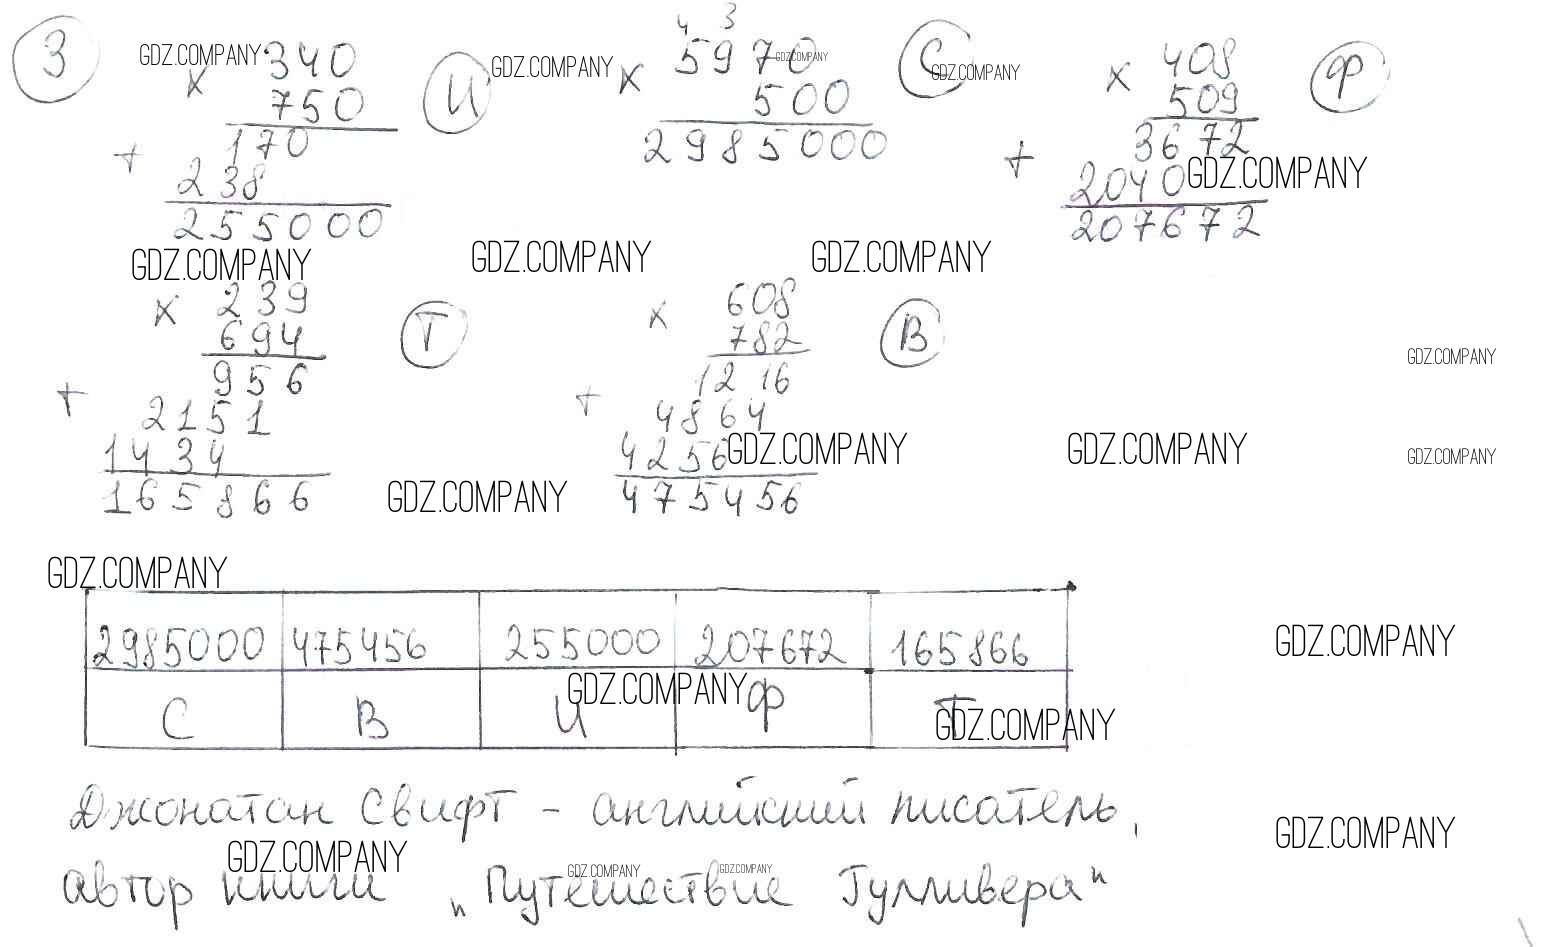 3
GDZ.COMPANY
× 340
750
+ 170
238
255000
И
GDZ.COMPANY
4 3
× 5970
GDZ.COMPANY
500
2985000
С
GDZ.COMPANY
× 408
509
+ 3672
2040
207672
Ф
GDZ.COMPANY
GDZ.COMPANY
GDZ.COMPANY
GDZ.COMPANY
× 239
694
+ 956
2151
1434
165866
Т
× 608
782
+ 1216
4864
4256
475456
В
GDZ.COMPANY
GDZ.COMPANY
GDZ.COMPANY
GDZ.COMPANY
GDZ.COMPANY
GDZ.COMPANY
2985000 475456 255000 207672 165866
GDZ.COMPANY
С В И Ф Т
GDZ.COMPANY
GDZ.COMPANY
Джонатан Свифт - английский писатель,
GDZ.COMPANY
GDZ.COMPANY
GDZ.COMPANY
GDZ.COMPANY
автор книги „Путешествие Гулливера"